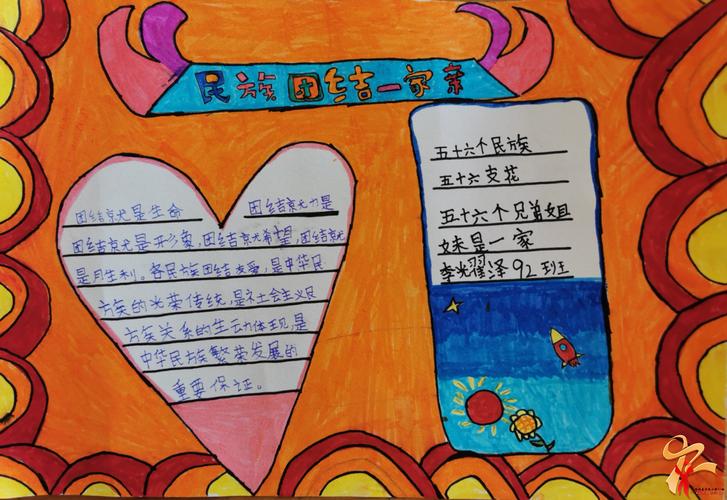 民族团结一家亲
团结就是生命 团结就力是
团结就是形象,团结就希望,团结就
是胜利。各民族团结友爱,是中华民
族的光荣传统,是社会主义民
族关系的生动体现,是
中华民族繁荣发展的
重要保证。
五十六个民族
五十六支花
五十六个兄弟姐
妹是一家
李 泽92班